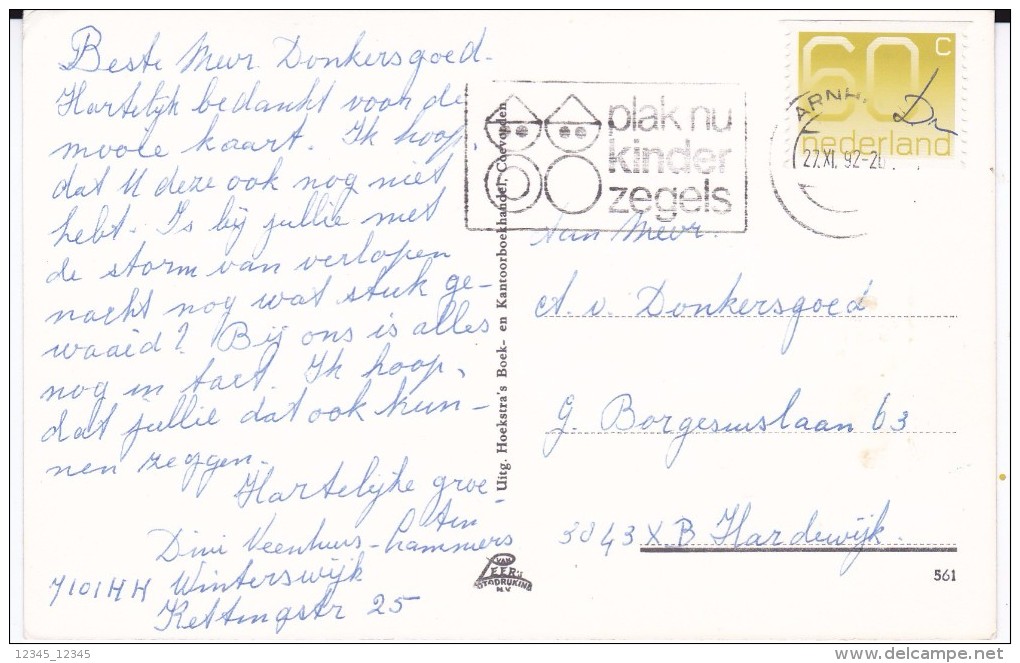 Beste Mevr. Donkersgoed.
Hartelijk bedankt voor de
mooie kaart. Ik hoop,
dat U deze ook nog niet
hebt. Is bij jullie met
de storm van verlopen
nacht nog wat stuk ge-
waaid? Bij ons is alles
nog in tact. Ik hoop,
dat jullie dat ook kun-
nen zeggen.
Hartelijke groe-
ten
Dini Veenhuis-Lammers
7101 HH Winterswijk
Kettingstr 25
Uitg. Hoekstra's Boek- en Kantoorboekhandel, Coevorden
VAN LEER'S
FOTODRUKIND
N.V.
plak nu
kinder
zegels
ARNH
27.XI. 92-20
60 c
nederland
Aan Mevr.
A. v. Donkersgoed
G. Borgesiuslaan 63
3843 XB Harderwijk.
561
12345_12345
delcampe.net